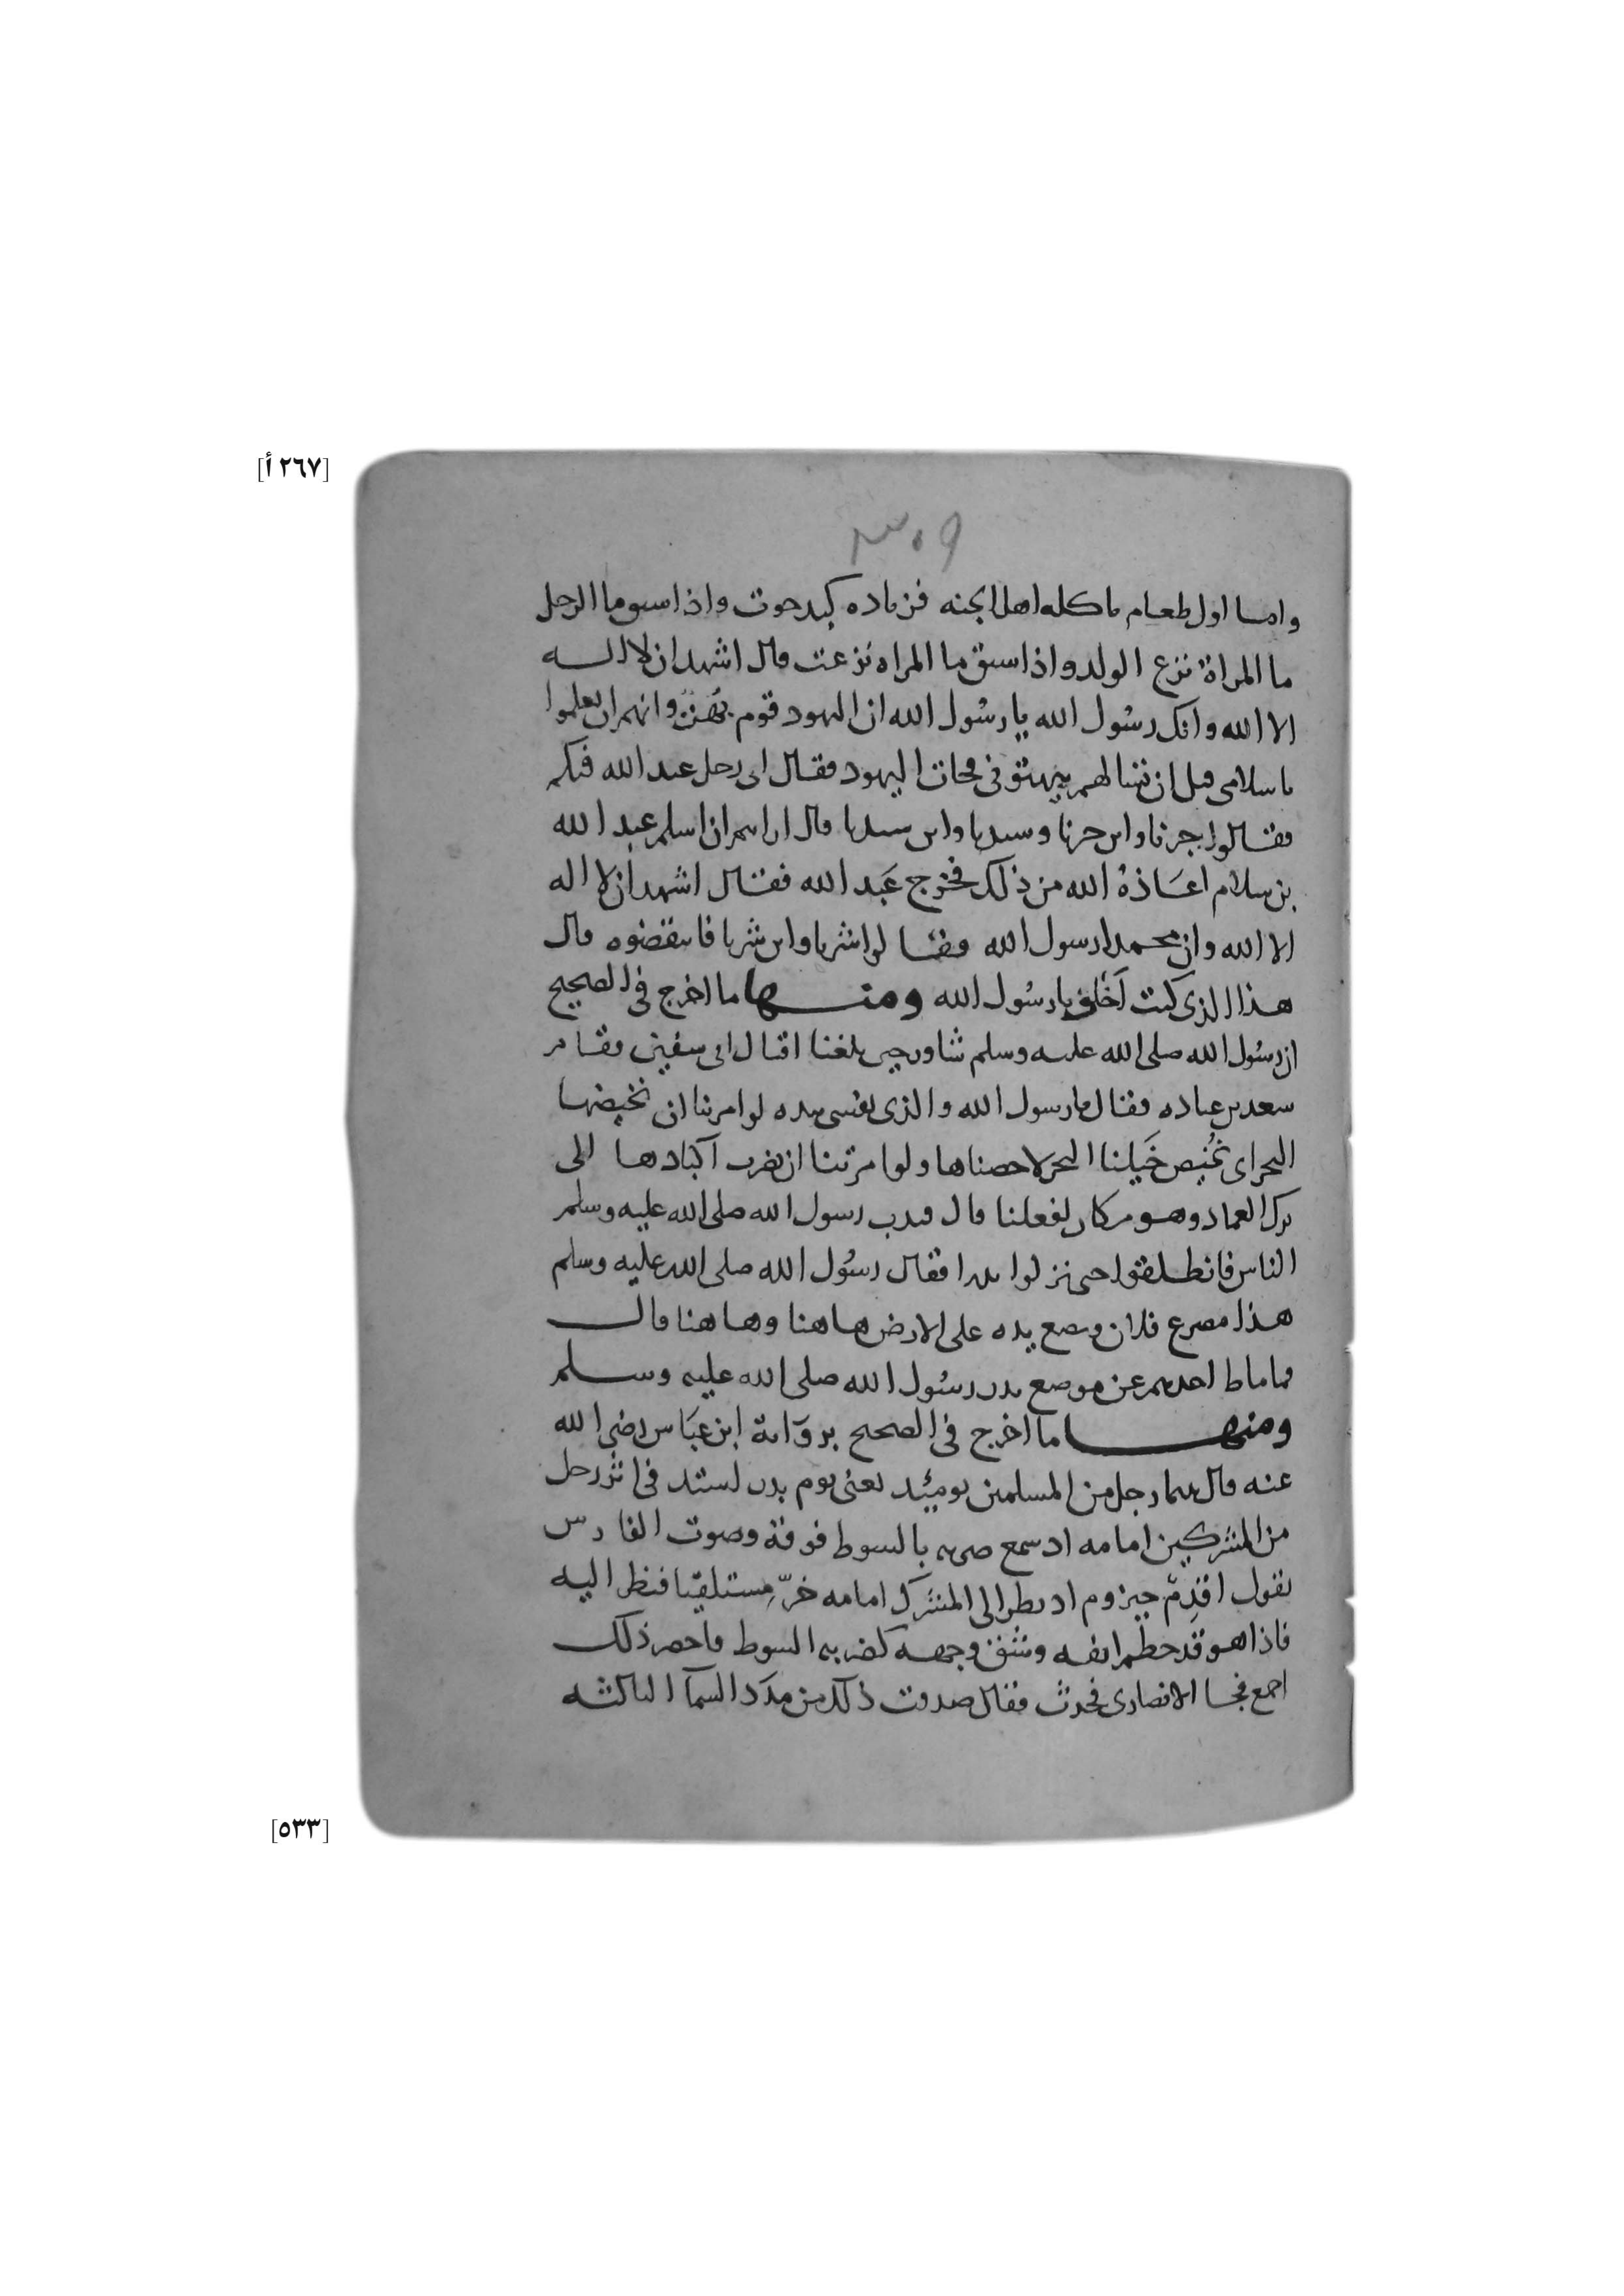 [٢٦٧ أ]
٣٠٩
واما اول طعام ياكله اهل الجنه فزياده كبد حوت واذا سبق ما الرجل
ما المراة نزع الولد واذا سبق ما المراه نزعت قال اشهد ان لا اله
الا الله وانك رسول الله يا رسول الله ان اليهود قوم بهت وانهم ان يعلموا
باسلامى قبل ان تسالهم يبهتونى فجات اليهود فقال اى رجل عبد الله فيكم
فقالوا خيرنا وابن خيرنا وسيدنا وابن سيدنا قال ارايتم ان اسلم عبد الله
بن سلام اعاذه الله من ذلك فخرج عبد الله فقال اشهد ان لا اله
الا الله وان محمدا رسول الله فقالوا شرنا وابن شرنا فانتقضوه قال
هذا الذى كنت اخاف يا رسول الله ومنها ما اخرج فى الصحيح
ان رسول الله صلى الله عليه وسلم شاور حين بلغنا اقبال ابى سفين فقام
سعد بن عباده فقال يا رسول الله والذى نفسى بيده لو امرتنا ان نخيضها
البحر اى نخيض خيلنا البحر لاخضناها ولو امرتنا ان نضرب اكبادها الى
برك الغماد وهو مكان لفعلنا قال فندب رسول الله صلى الله عليه وسلم
الناس فانطلقوا حتى نزلوا بدرا فقال رسول الله صلى الله عليه وسلم
هذا مصرع فلان ويضع يده على الارض هاهنا وهاهنا قال
فماماط احدهم عن موضع يد رسول الله صلى الله عليه وسلم
ومنها ما اخرج فى الصحيح برواية ابن عباس رضى الله
عنه قال بينما رجل من المسلمين يوميئد يعنى يوم بدر يشتد فى اثر رجل
من المشركين امامه اد سمع ضربه بالسوط فوقه وصوت الفارس
يقول اقدم حيزوم اد نظر الى المشرك امامه خر مستلقيا فنظر اليه
فاذا هو قد حطم انفه وشق وجهه كضربه السوط فاخضر ذلك
اجمع فجا الانصارى فحدث فقال صدقت ذلك من مدد السمآ الثالثه
[٥٣٣]